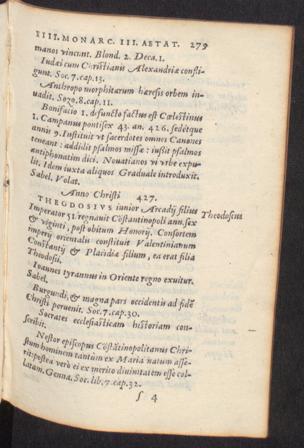 IIII. MONARC. III. AETAT. 279
manos vincunt. Blond. 2. Deca. 1.
Iudæi cum Christianis Alexandriæ confli-
gunt. Soc. 7. cap. 13.
Anthropomorphitarum hæresis orbem in-
uadit. Sozo. 8. cap. 11.
Bonifacio 1. defuncto factus est Cœlestinus
1. Campanus pontifex 43. an. 426. sedétque
annis 9. Instituit vt sacerdotes omnes Canones
teneant: addidit psalmos missæ: iussit psalmos
antiphonatim dici. Nouatianos vi vrbe expu-
lit. Idem iuxta aliquos Graduale introduxit.
Sabel. Volat.
Anno Christi 427.
THEODOSIVS iunior Arcadij filius Theodosius
Imperator 51. regnauit Cōstantinopoli ann. sex
& viginti, post obitum Honorij. Consortem
imperij orientalis constituit Valentinianum
Constantij & Placidiæ filium, ea erat filia
Theodosij.
Ioannes tyrannus in Oriente regno exuitur.
Sabel.
Burgundi, & magna pars occidentis ad fidē
Christi peruenit. Soc. 7. cap. 30.
Socrates ecclesiasticam historiam con-
scribit.
Nestor episcopus Cōstātinopolitanus Chri-
stum hominem tantùm ex Maria natum asse-
rit: postea verò ei ex merito diuinitatem esse col-
latam. Genna. Soc. lib. 7. cap. 32.
ſ 4